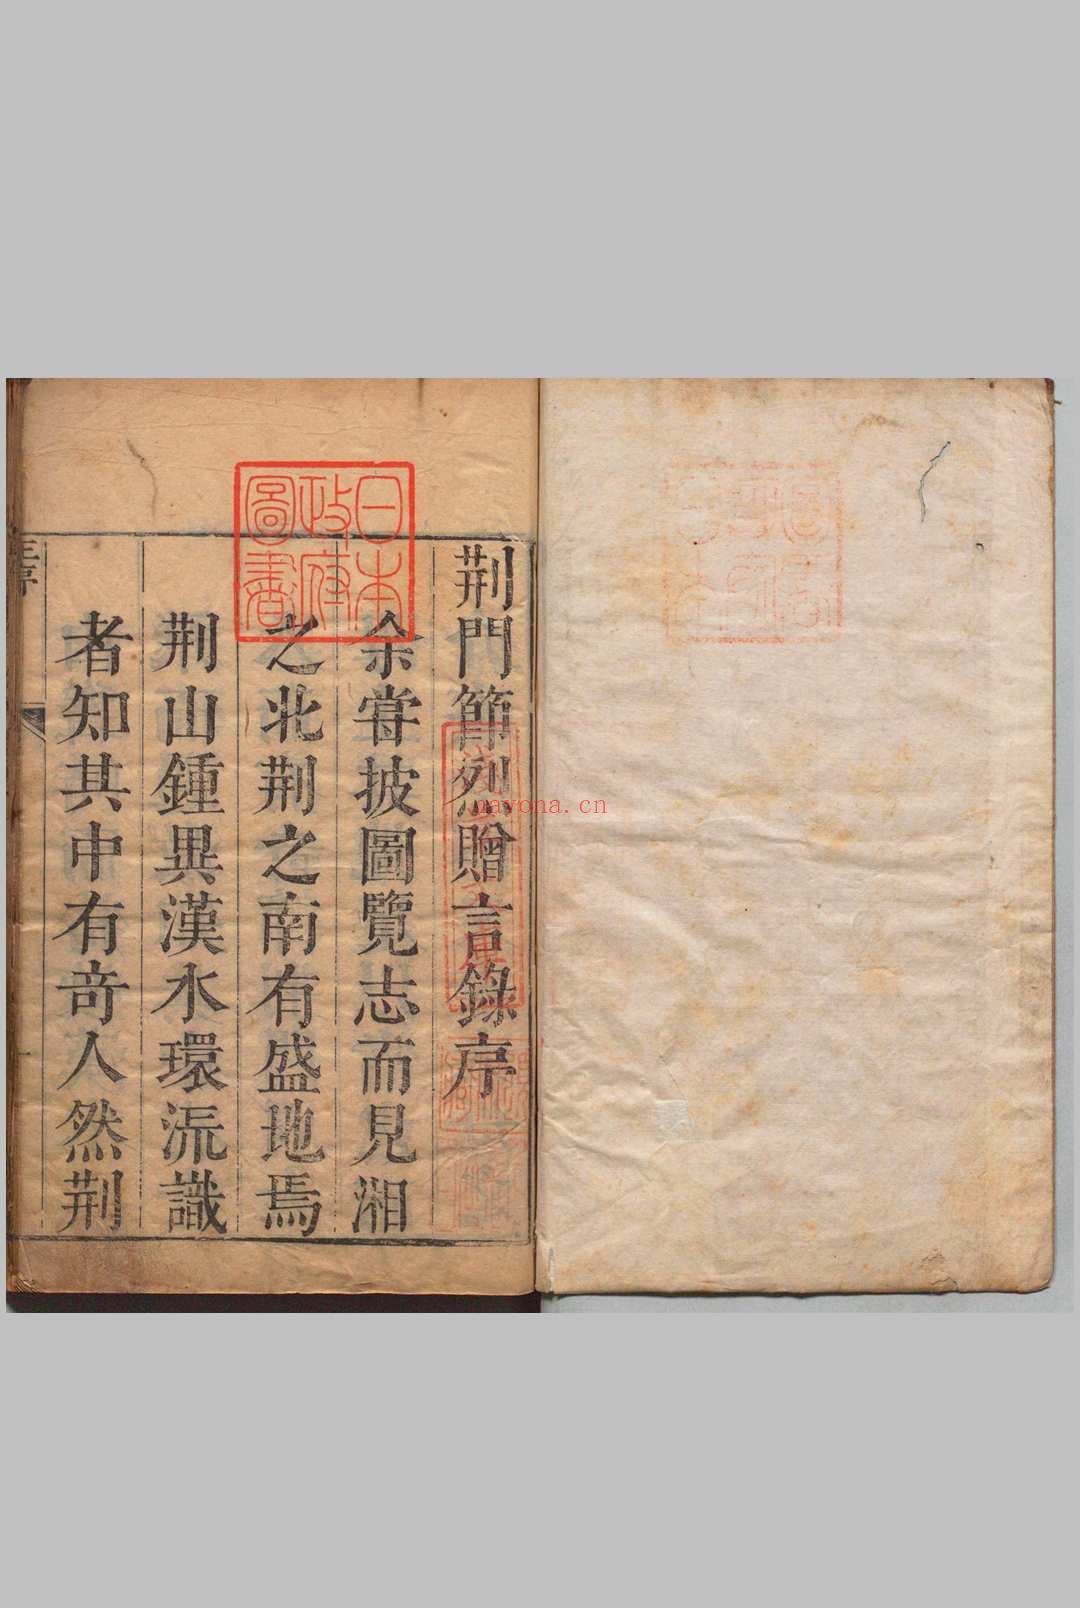 荆門節烈贈言錄序
余嘗披圖覽志而見湘
之北荆之南有盛地焉
荆山鍾異漢水環流識
者知其中有竒人然荆
日本
政府
圖書
nayona.cn